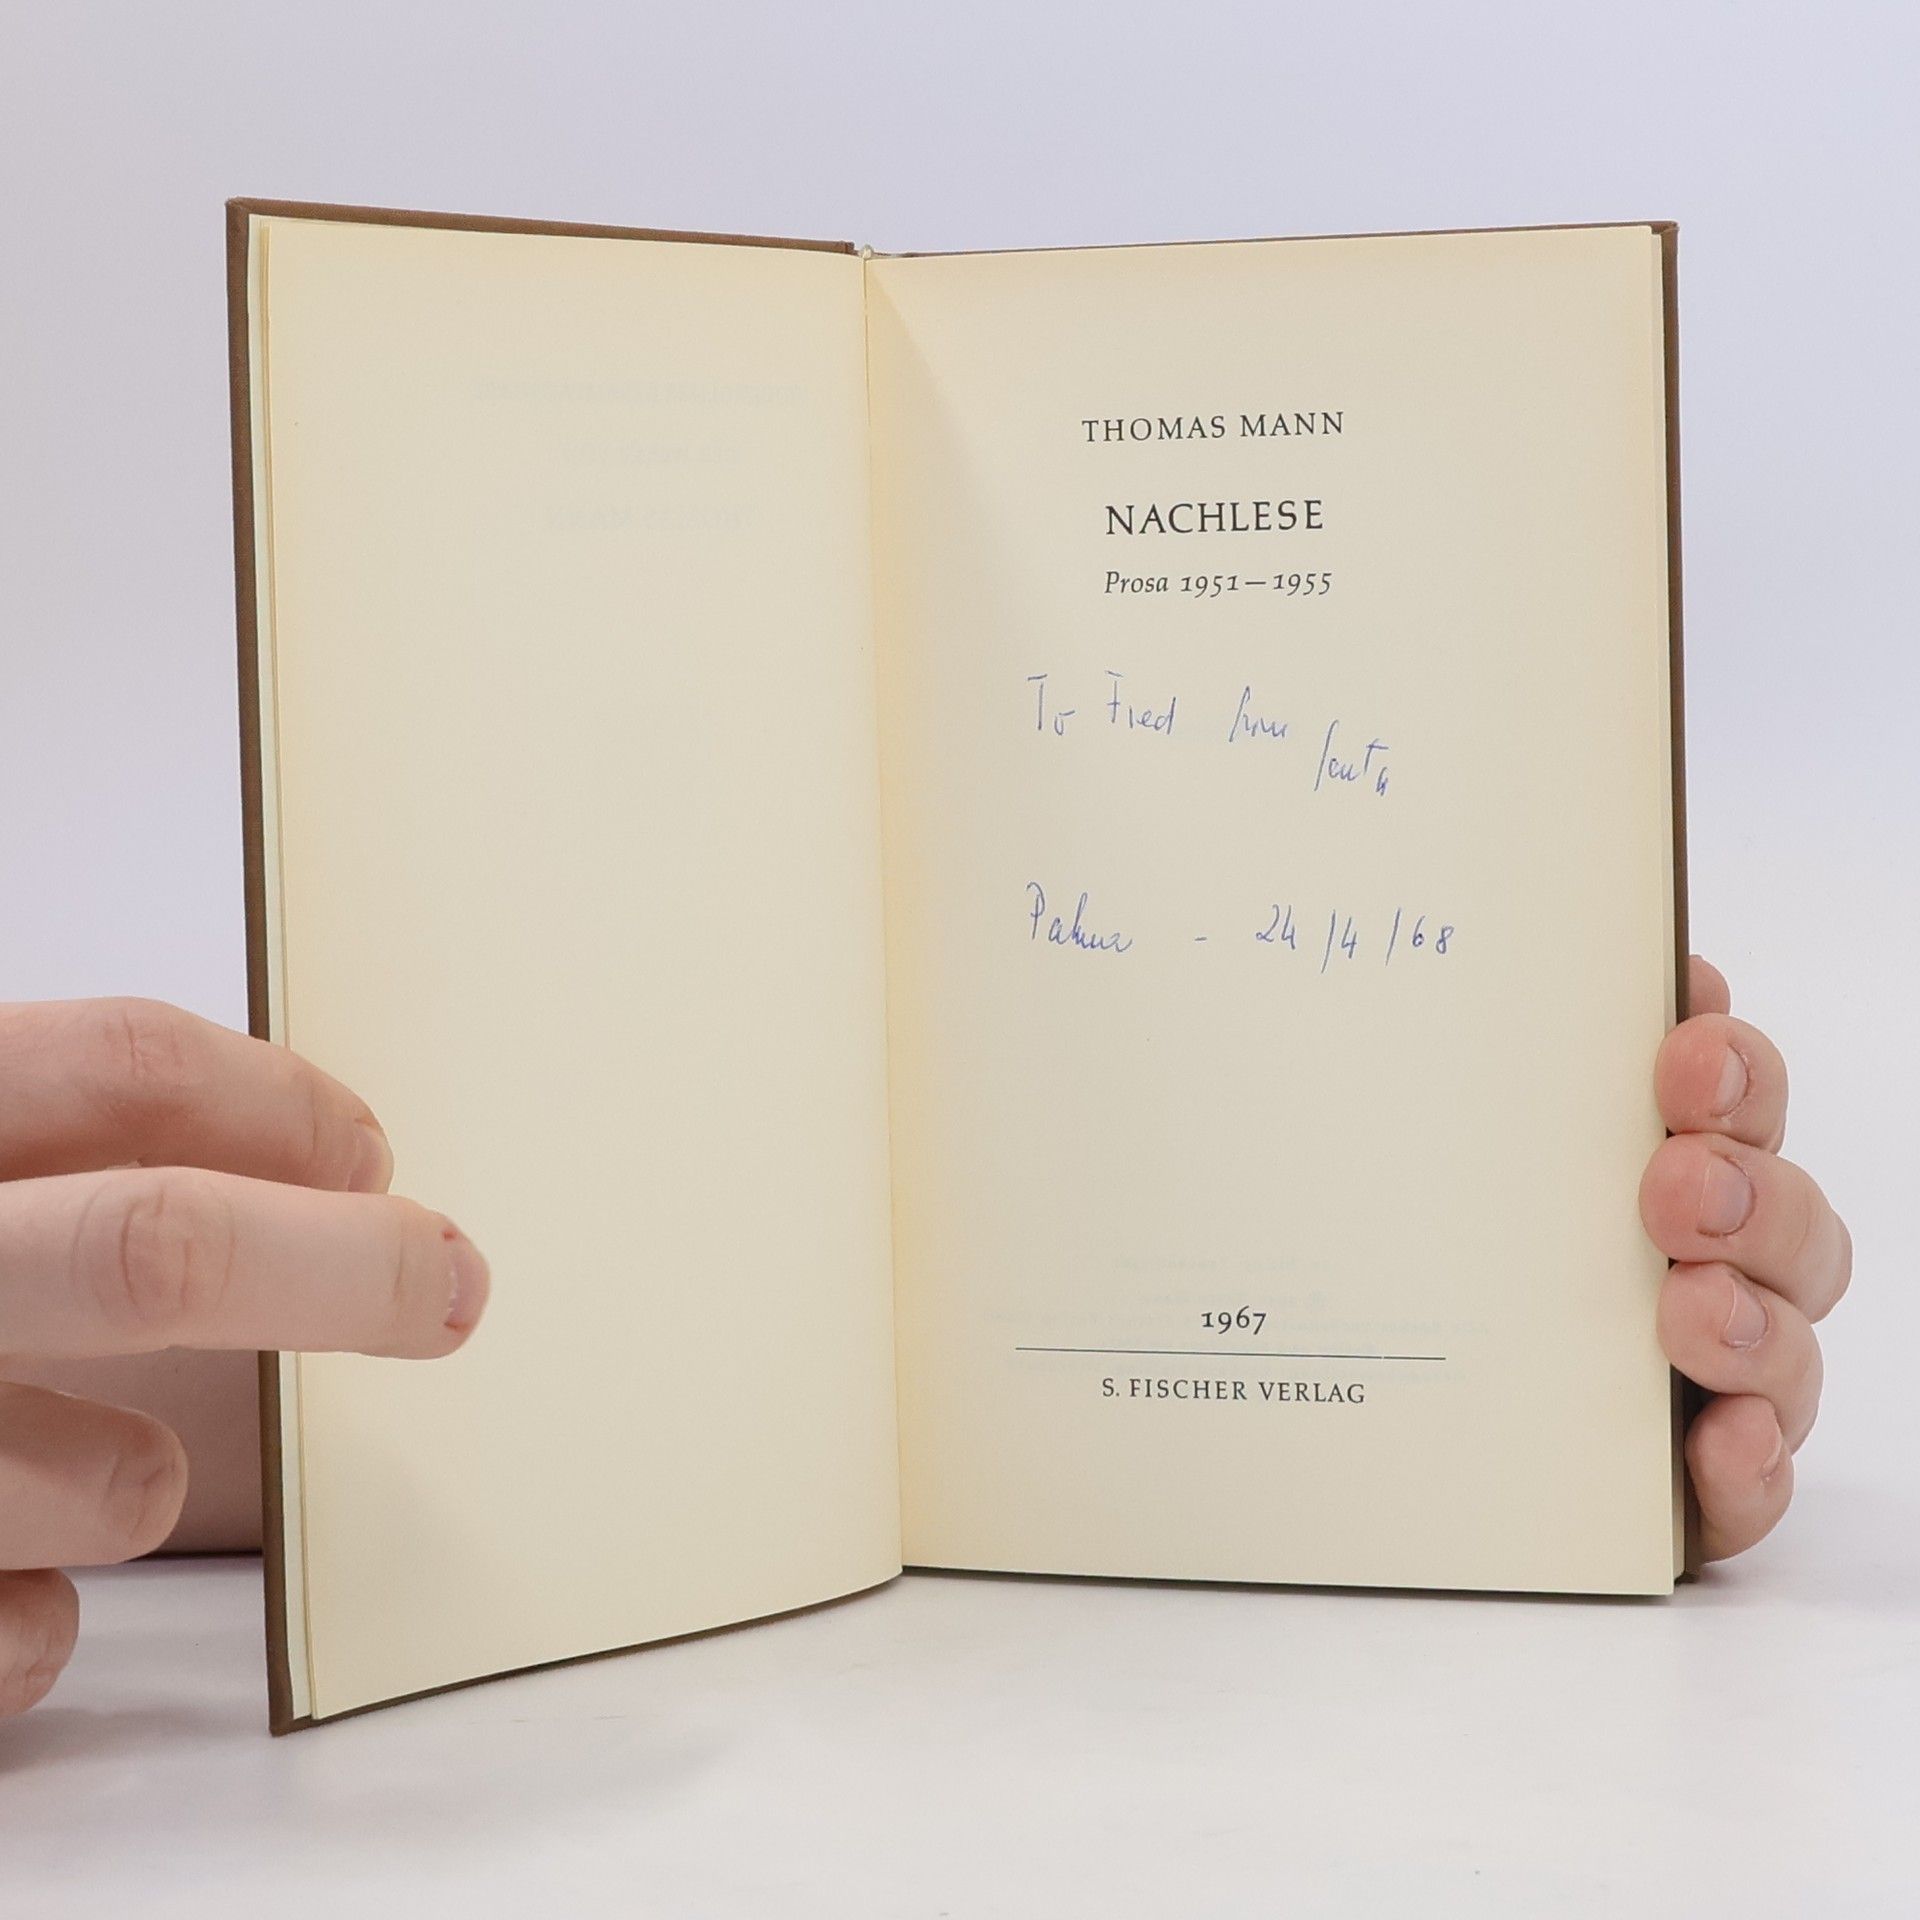 THOMAS MANN
NACHLESE
Prosa 1951—1955
To Fred from
Palma - 24/4/68
1967
S. FISCHER VERLAG